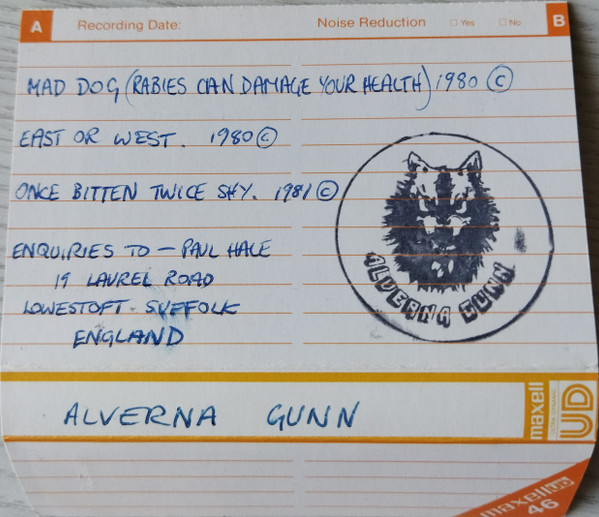 A Recording Date: Noise Reduction Yes No B
MAD DOG (RABIES CAN DAMAGE YOUR HEALTH) 1980 ©
EAST OR WEST. 1980 ©
ONCE BITTEN TWICE SHY. 1981 ©
ENQUIRIES TO - PAUL HALE
19 LAUREL ROAD
LOWESTOFT - SUFFOLK
ENGLAND
ALVERNA GUNN
ALVERNA GUNN
maxell UD
maxell UD
46